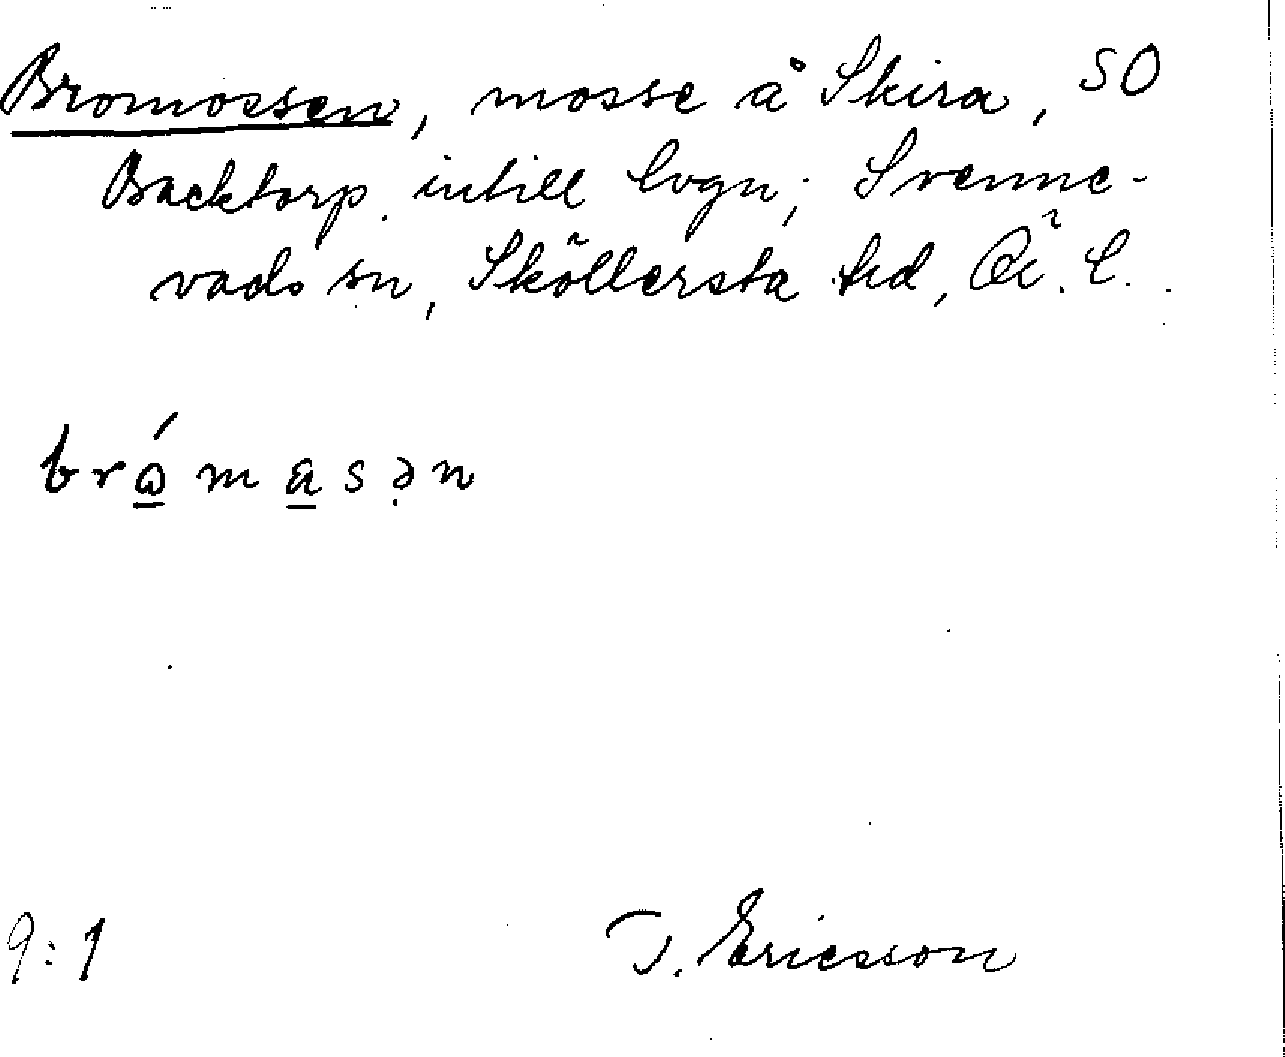 Bromossen, mosse å Skira, SO
Backtorp, intill lvgn; Svenne-
vads sn, Sköllersta hd, Ö. l.
brómasən
9:1
T. Ericsson